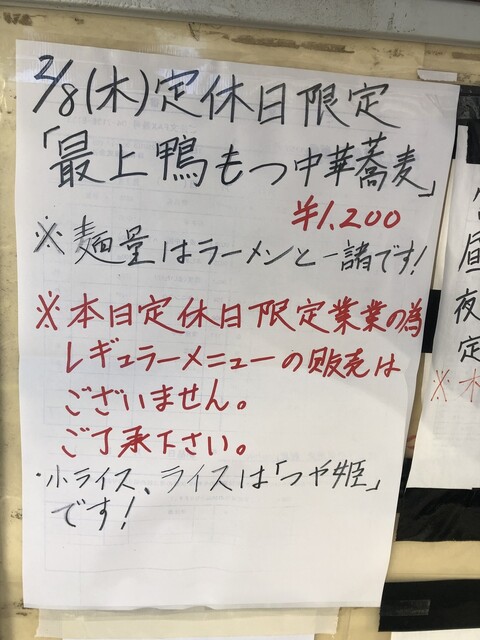 2/8(木)定休日限定
「最上鴨もつ中華蕎麦」
¥1,200
※麺量はラーメンと一諸です!
※本日定休日限定業業の為
レギュラーメニューの販売は
ございません。
ご了承下さい。
・小ライス、ライスは「つや姫」
です!
昼
夜
定
※